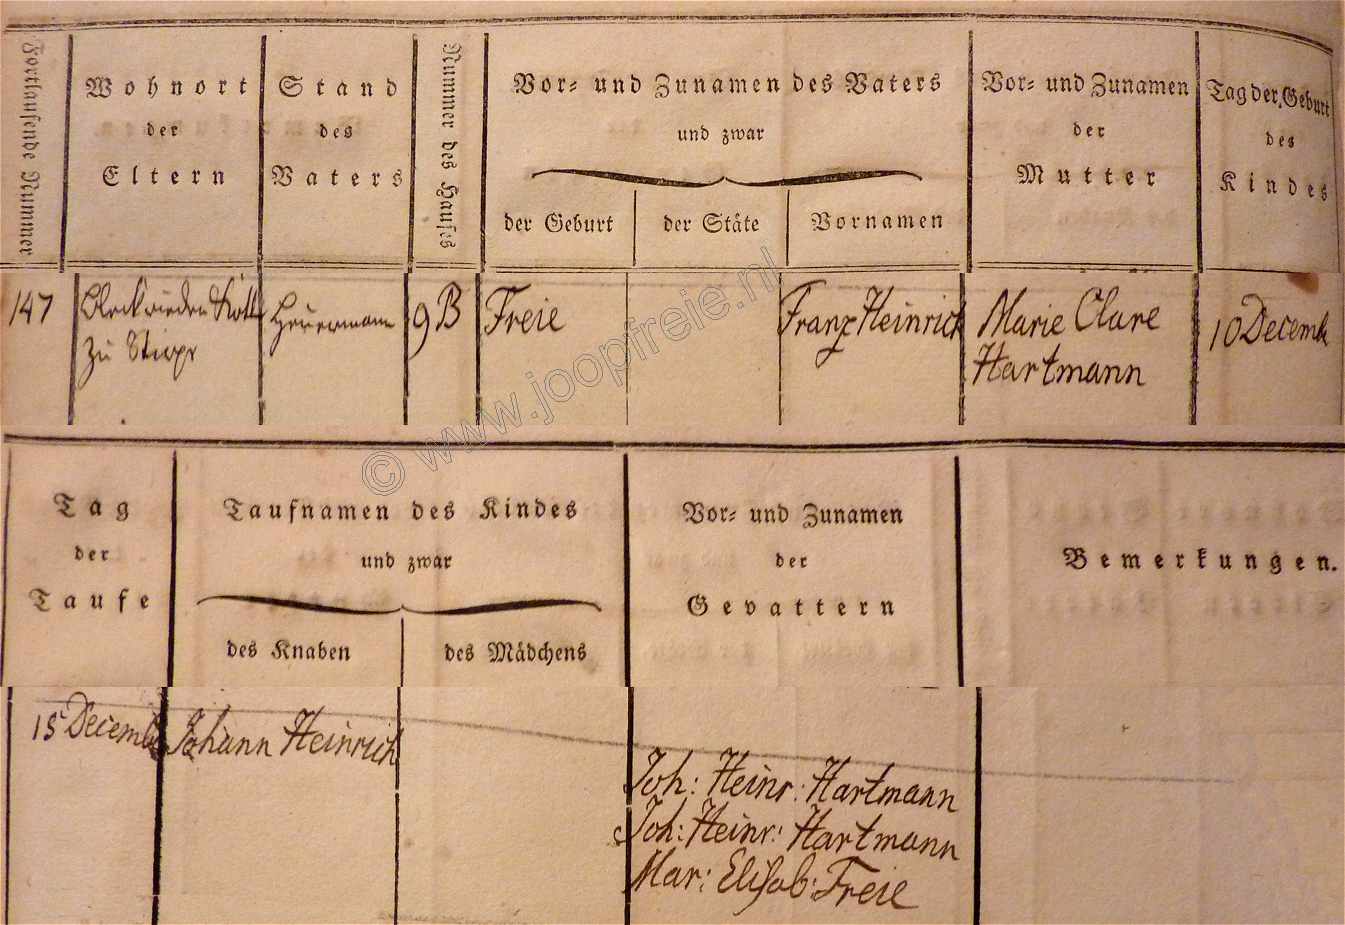 Fortlaufende Nummer
Wohnort
der
Eltern
Stand
des
Vaters
Nummer des Hauses
Vor- und Zunamen des Vaters
und zwar
der Geburt
der Stäte
Vornamen
Vor- und Zunamen
der
Mutter
Tag der Geburt
des
Kindes
147
zu
Heuermann
9 B
Freie
Franz Heinrich
Marie Clare
Hartmann
10 Decemb
© www.joopfreie.nl
Tag
der
Taufe
Taufnamen des Kindes
und zwar
des Knaben
des Mädchens
Vor- und Zunamen
der
Gevattern
Bemerkungen.
15 Decemb
Johann Heinrich
Joh: Heinr: Hartmann
Joh: Heinr: Hartmann
Mar: Elisab: Freie